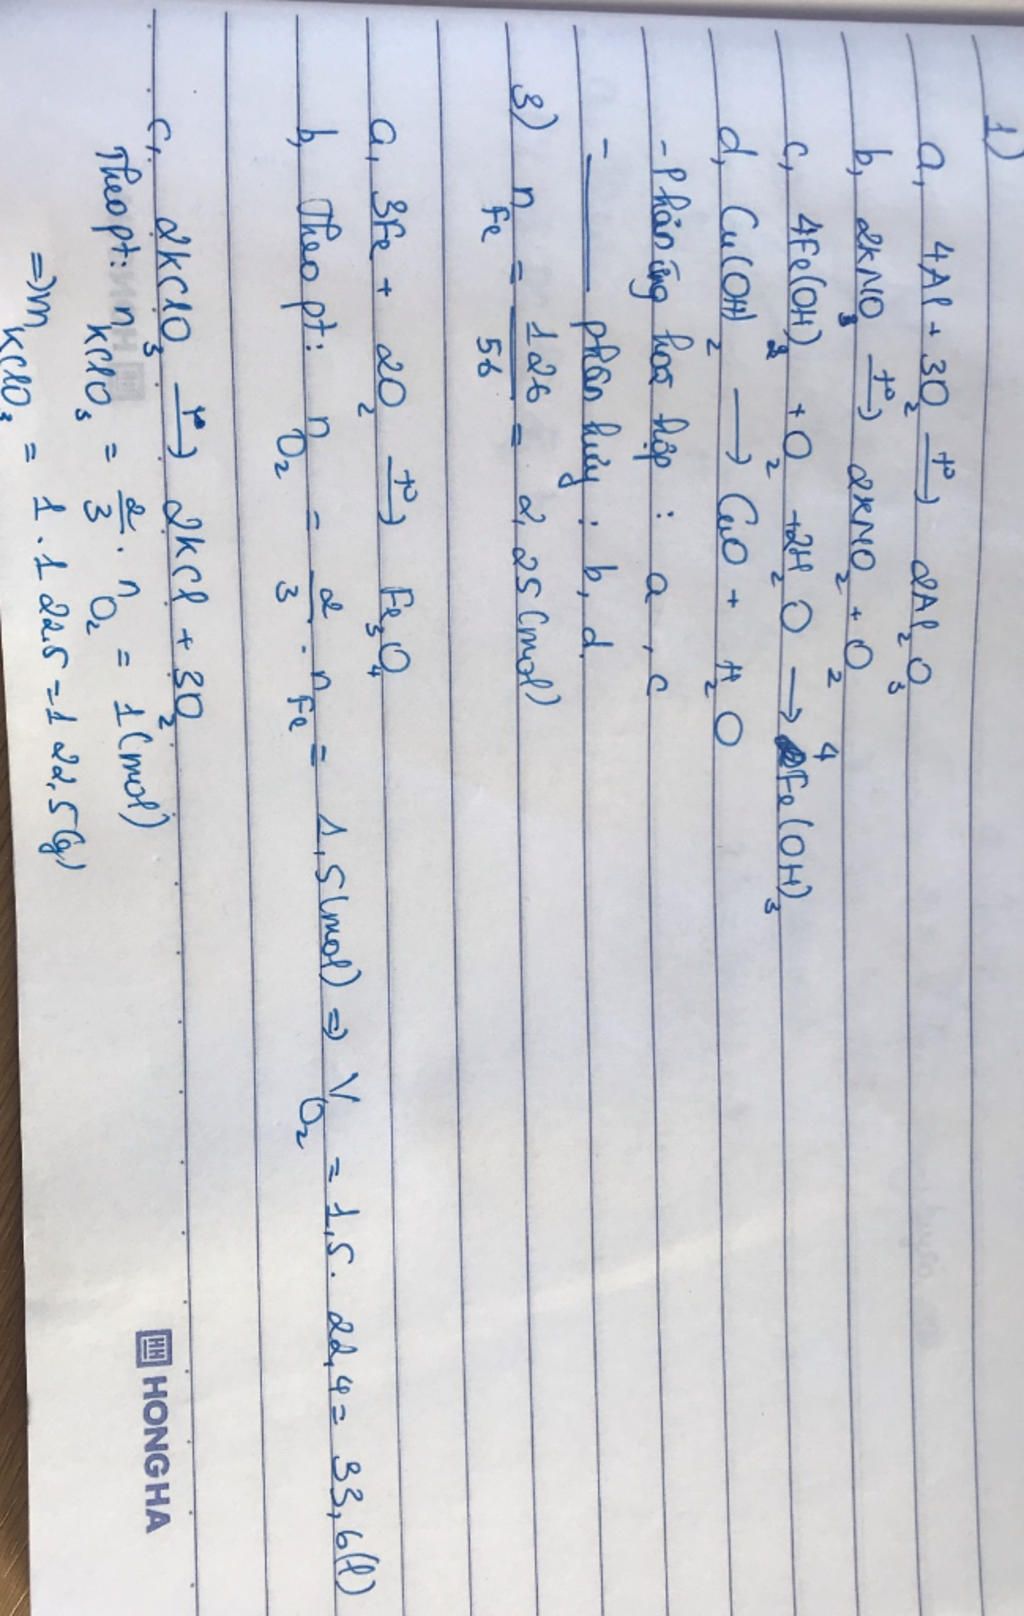 1)
a, 4Al + 3O2 t°→ 2Al2O3
b, 2KNO3 t°→ 2KNO2 + O2
c, 4Fe(OH)2 + O2 + 2H2O → 4Fe(OH)3
d, Cu(OH)2 → CuO + H2O
- Phản ứng hoá hợp : a, c
- ——— phân hủy : b, d.
3) nFe = 126/56 = 2,25(mol)
a, 3Fe + 2O2 t°→ Fe3O4
b, Theo pt: nO2 = 2/3 . nFe = 1,5(mol) => VO2 = 1,5 . 22,4 = 33,6(l)
c, 2KClO3 t°→ 2KCl + 3O2
Theo pt: nKClO3 = 2/3 . nO2 = 1(mol)
=> mKClO3 = 1 . 122,5 = 122,5(g)
HH HONG HA